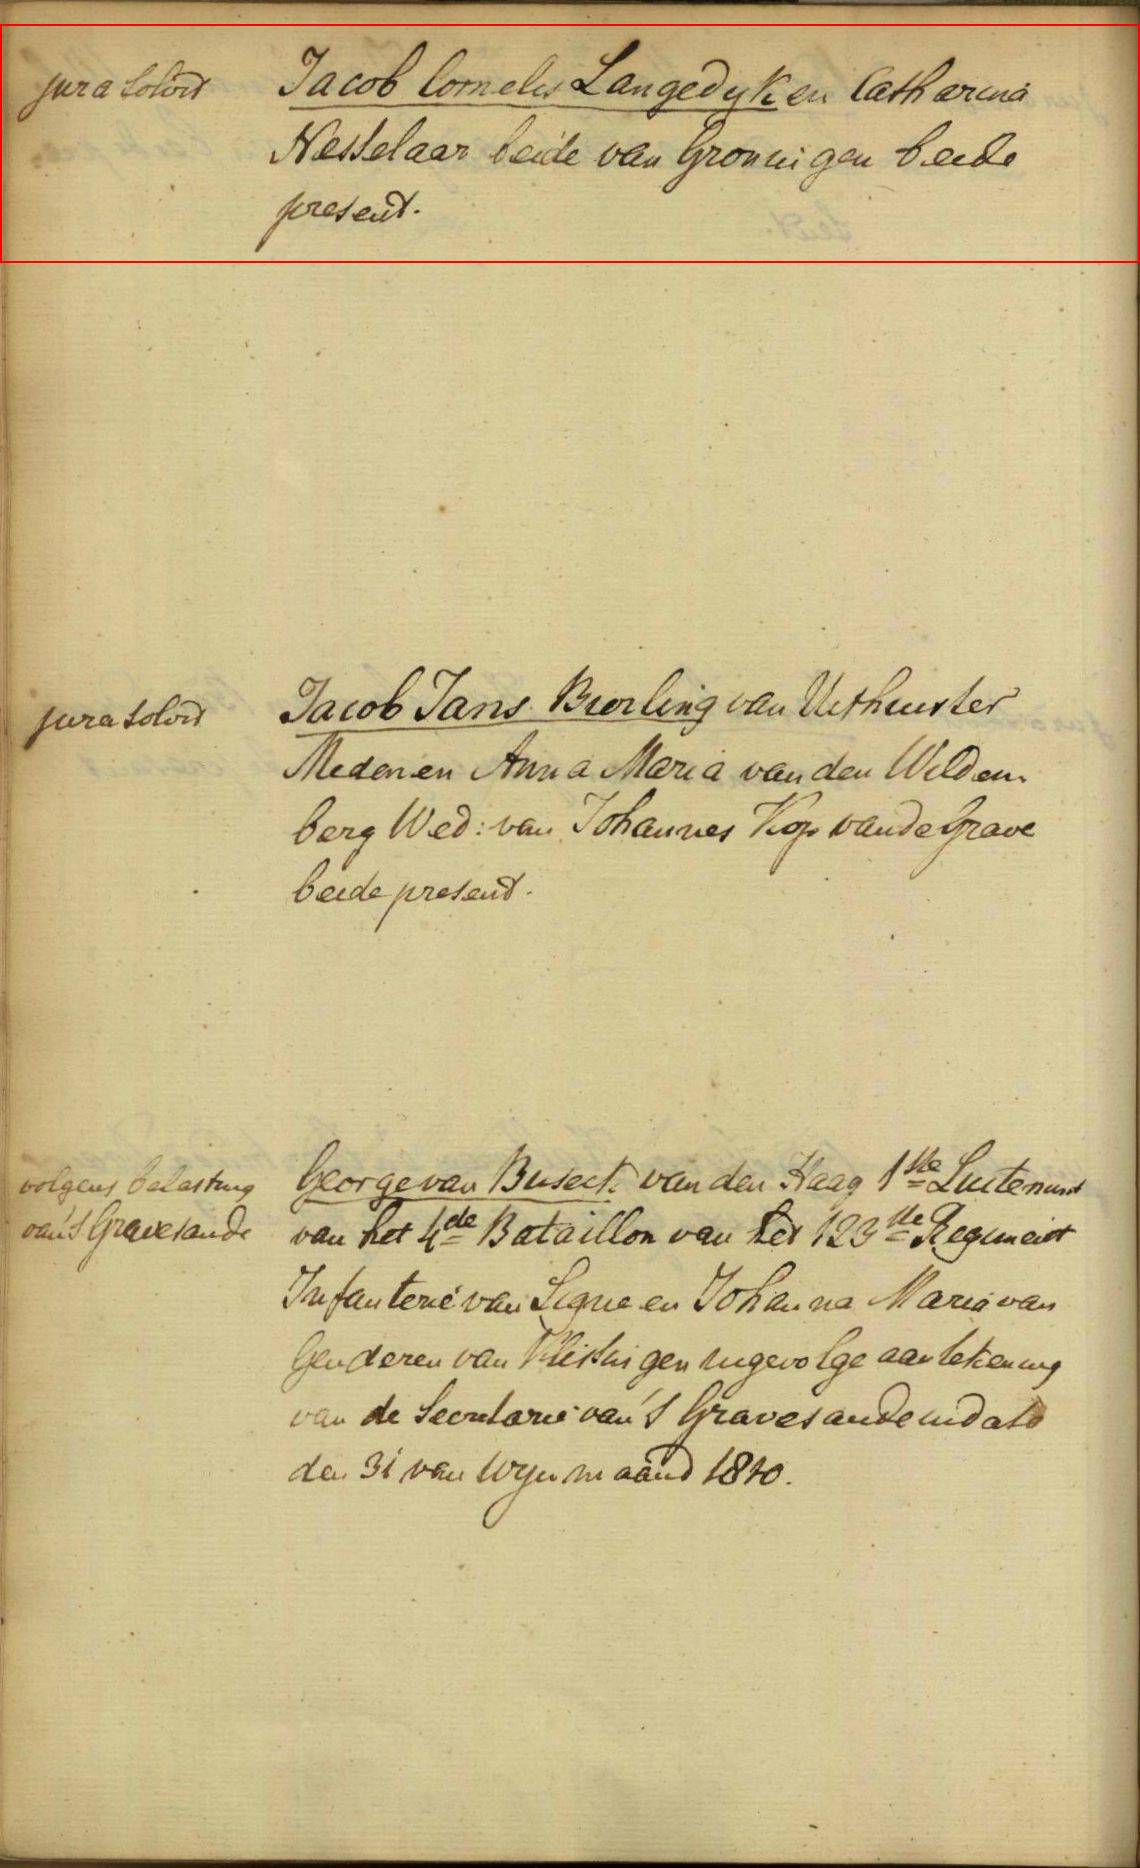 jura solvit
Jacob Cornelis Langedyk en Catharina
Nesselaar beide van Groningen beide
present.
jura solvit
Jacob Jans Buorling van Uithuister
Meden en Anna Maria van den Wilden-
berg Wed: van Johannes Kop van de Grave
beide present.
volgens belasting
van 's Gravesande
George van Buseck van den Haag 1ste Luitenant
van het 4de Bataillon van het 123ste Regiment
Infanterie van Ligne en Johanna Maria van
Genderen van Vlissingen ingevolge aantekening
van de Secretarie van 's Gravesande in dato
den 31 van Wynmaand 1810.